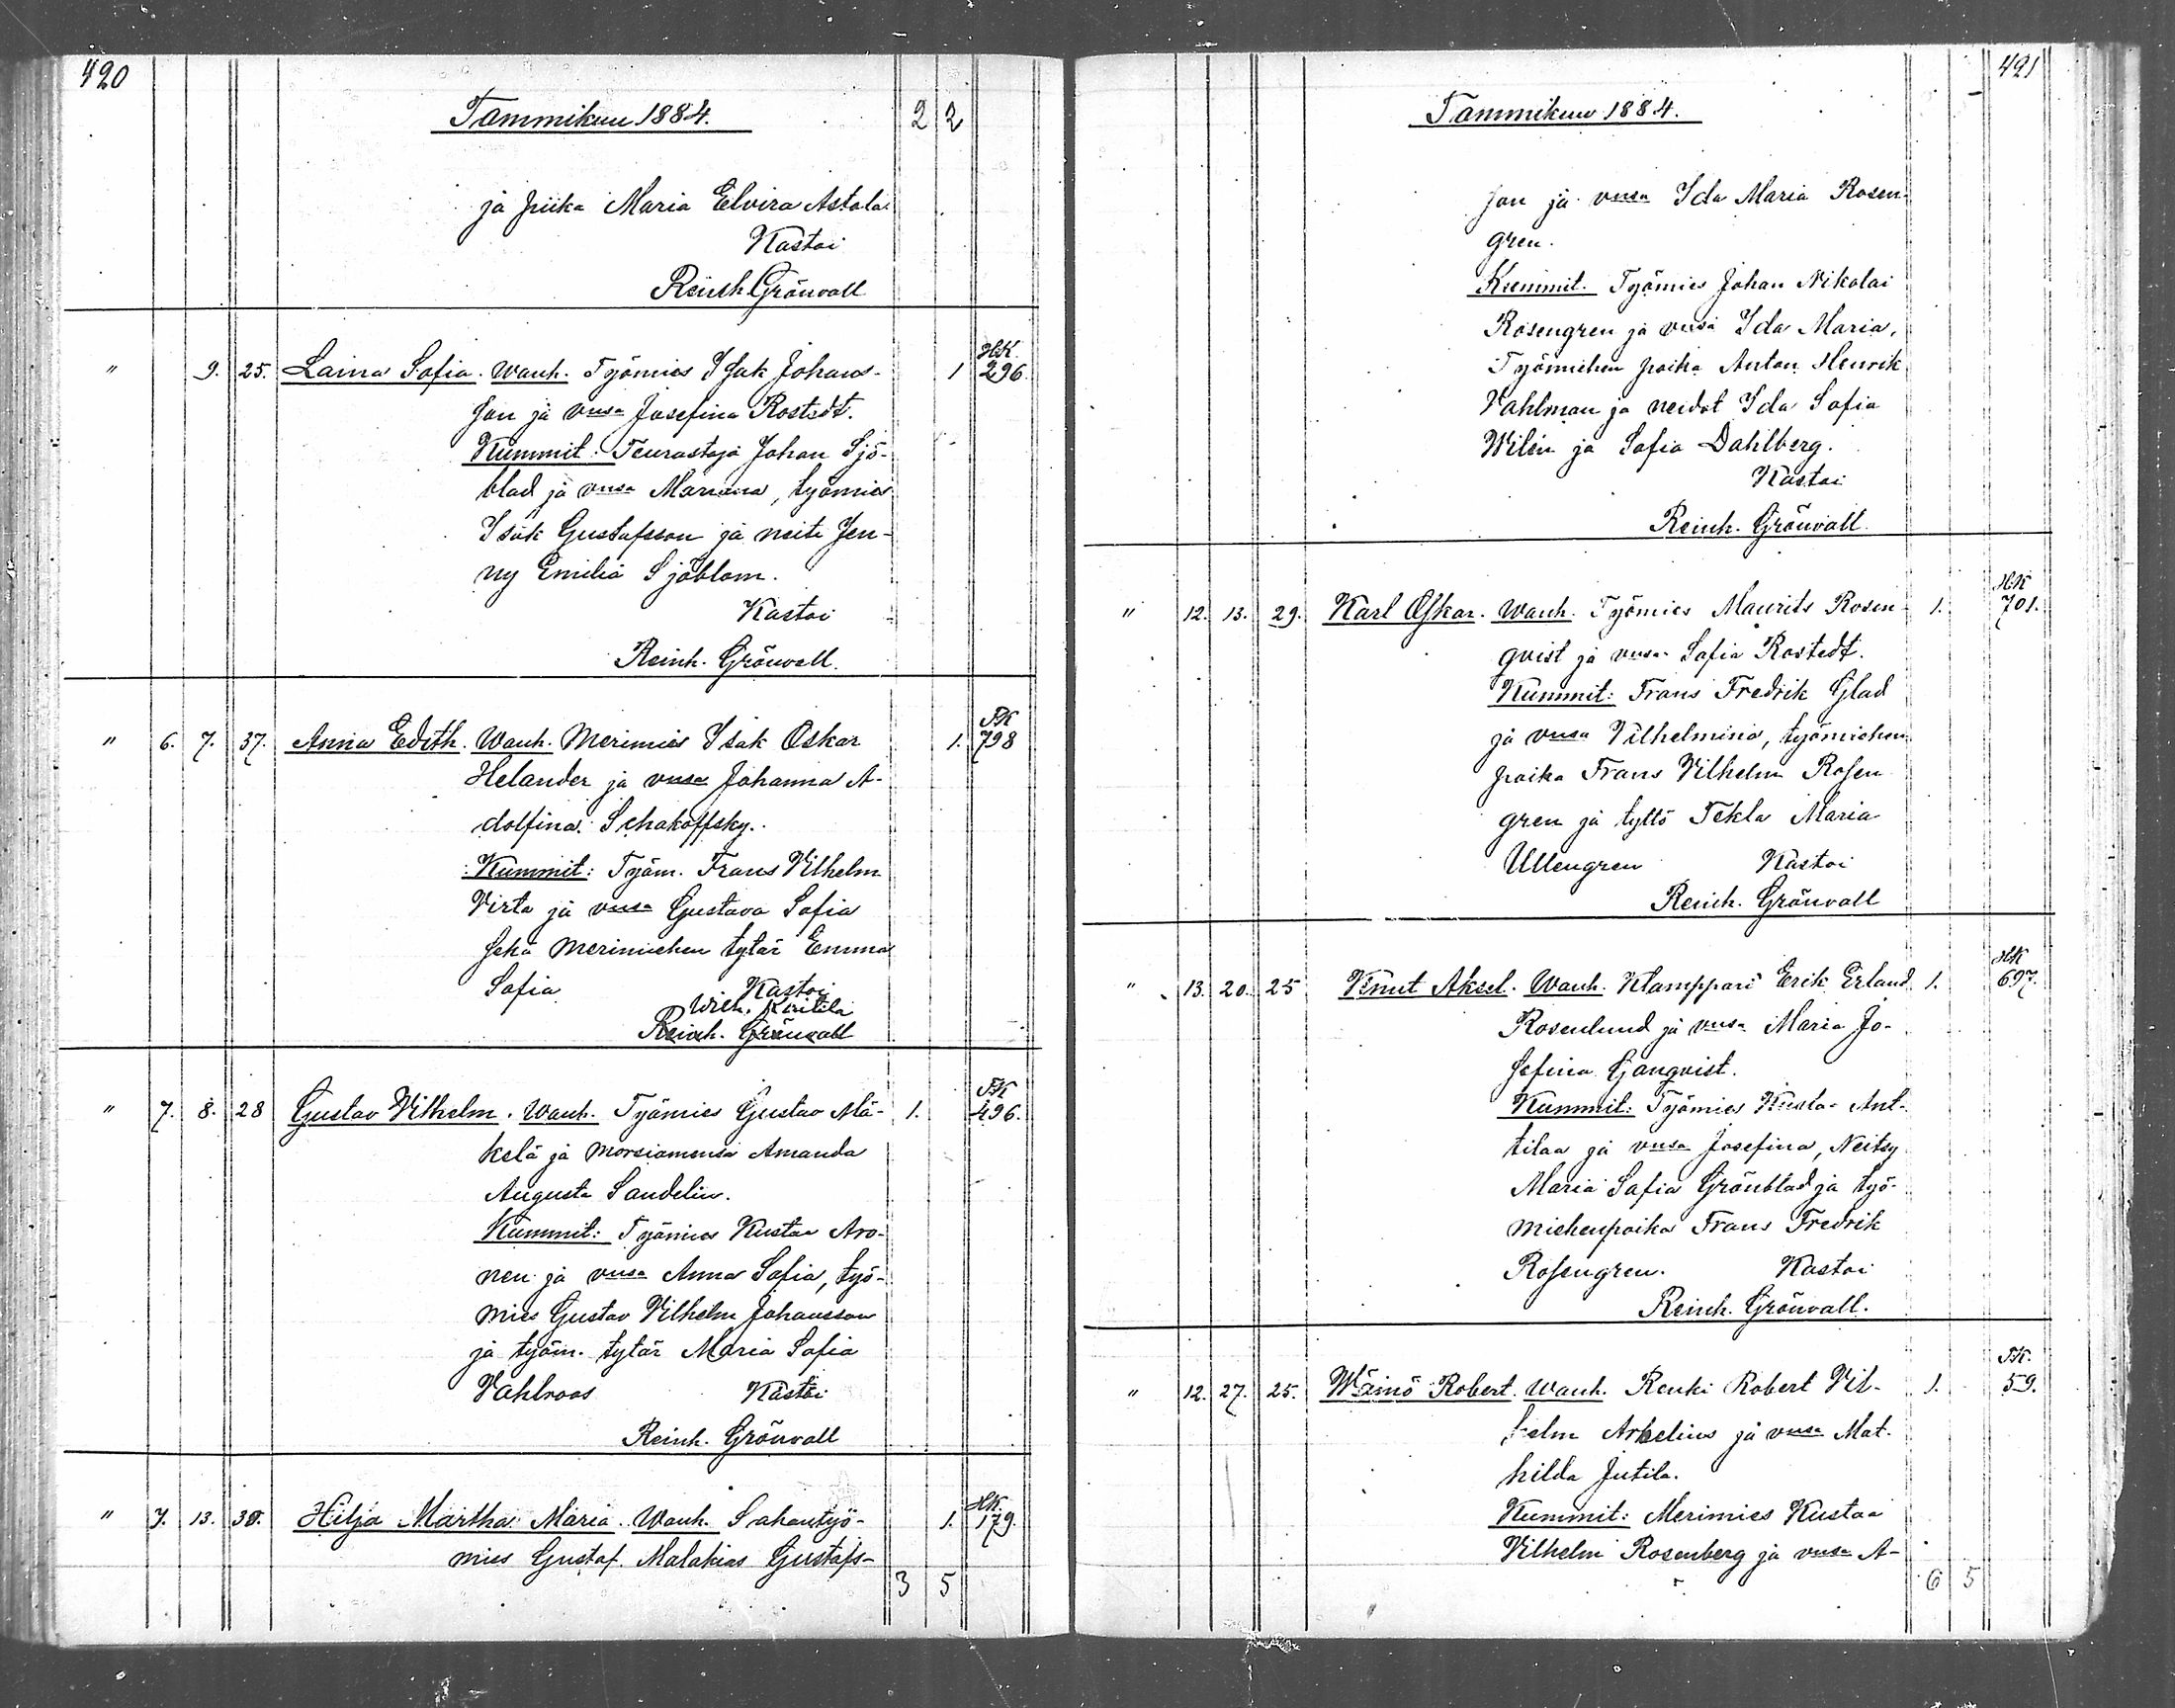 420
Tammikuu 1884. 2 2
ja piika Maria Elvira Astala
Kastoi
Reinh. Grönvall
" 9. 25. Laina Sofia. Wanh. Työmies Isak Johans- 1 HK. 296.
son ja vmsa Josefina Rostedt.
Kummit: Teurastaja Johan Sjö-
blad ja vmsa Mariana, työmies
Isak Gustafsson ja neiti Jen-
ny Emilia Sjöblom.
Kastoi
Reinh. Grönvall.
" 6. 7. 37. Anna Edith. Wanh. Merimies Isak Oskar 1. PK 798
Helander ja vmsa Johanna A-
dolfina Schakoffsky.
Kummit: Työm. Frans Vilhelm
Virta ja vmsa Gustava Sofia
sekä merimiehen tytär Emma
Sofia Kastoi
Wilh.
Reinh. Grönvall
" 7. 8. 28 Gustav Vilhelm. Wanh. Työmies Gustav Mä- 1. PK 496.
kelä ja morsiamensa Amanda
Augusta Sandelin.
Kummit: Työmies Kustaa Aro-
nen ja vmsa Anna Sofia, työ-
mies Gustav Vilhelm Johansson
ja työm. tytär Maria Sofia
Vahlroos Kastoi
Reinh. Grönvall
" 7. 13. 30. Hilja Martha Maria. Wanh. Sahantyö- 1. HK. 179.
mies Gustaf Malakias Gustafs-
3 5
421
Tammikuu 1884.
son ja vmsa Ida Maria Rosen-
gren.
Kummit. Työmies Johan Nikolai
Rosengren ja vmsa Ida Maria,
Työmiehen poika Anton Henrik
Vahlman ja neidot Ida Sofia
Wilén ja Sofia Dahlberg.
Kastoi
Reinh. Grönvall.
" 12. 13. 29. Karl Oskar. Wanh. Työmies Maurits Rosen- 1. HK 701.
qvist ja vmsa Sofia Rostedt.
Kummit: Frans Fredrik Glad
ja vmsa Vilhelmina, työmiehen
poika Frans Vilhelm Rosen
gren ja tyttö Tekla Maria
Ullengren Kastoi
Reinh. Grönvall
" 13. 20. 25 Knut Aksel. Wanh. Klamppari Erik Erland 1. HK 697.
Rosenlund ja vmsa Maria Jo-
sefina Ganqvist.
Kummit: Työmies Kusta Ant-
tilaa ja vmsa Josefina, Neitsy
Maria Sofia Grönblad ja työ-
miehenpoika Frans Fredrik
Rosengren. Kastoi
Reinh. Grönvall.
" 12. 27. 25. Wäinö Robert. Wanh. Renki Robert Vil- 1. PK. 59.
helm Arkelius ja vmsa Mat-
hilda Jutila.
Kummit: Merimies Kustaa
Vilhelm Rosenberg ja vmsa A-
6 5